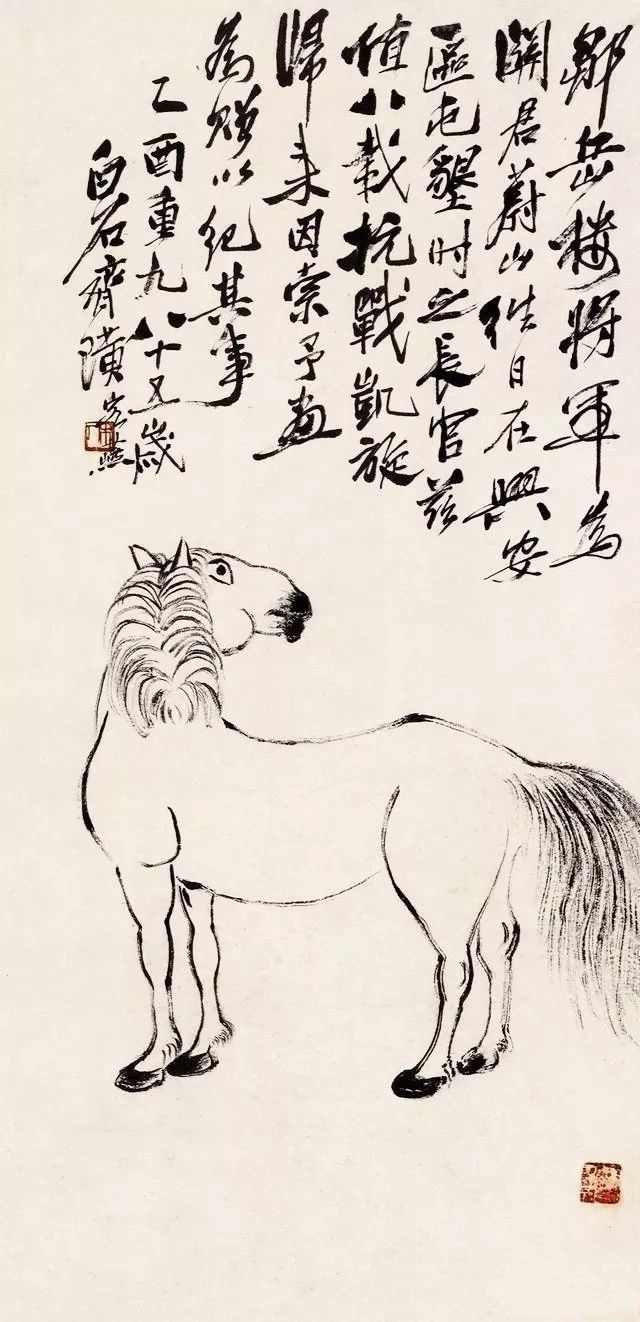 鄒岳楼將軍為
關君蔚山往日在興安
區屯墾时之長官茲
值八載抗戰凱旋
歸来因索予畫
為贈以紀其事
乙酉重九八十五歲
白石齊璜